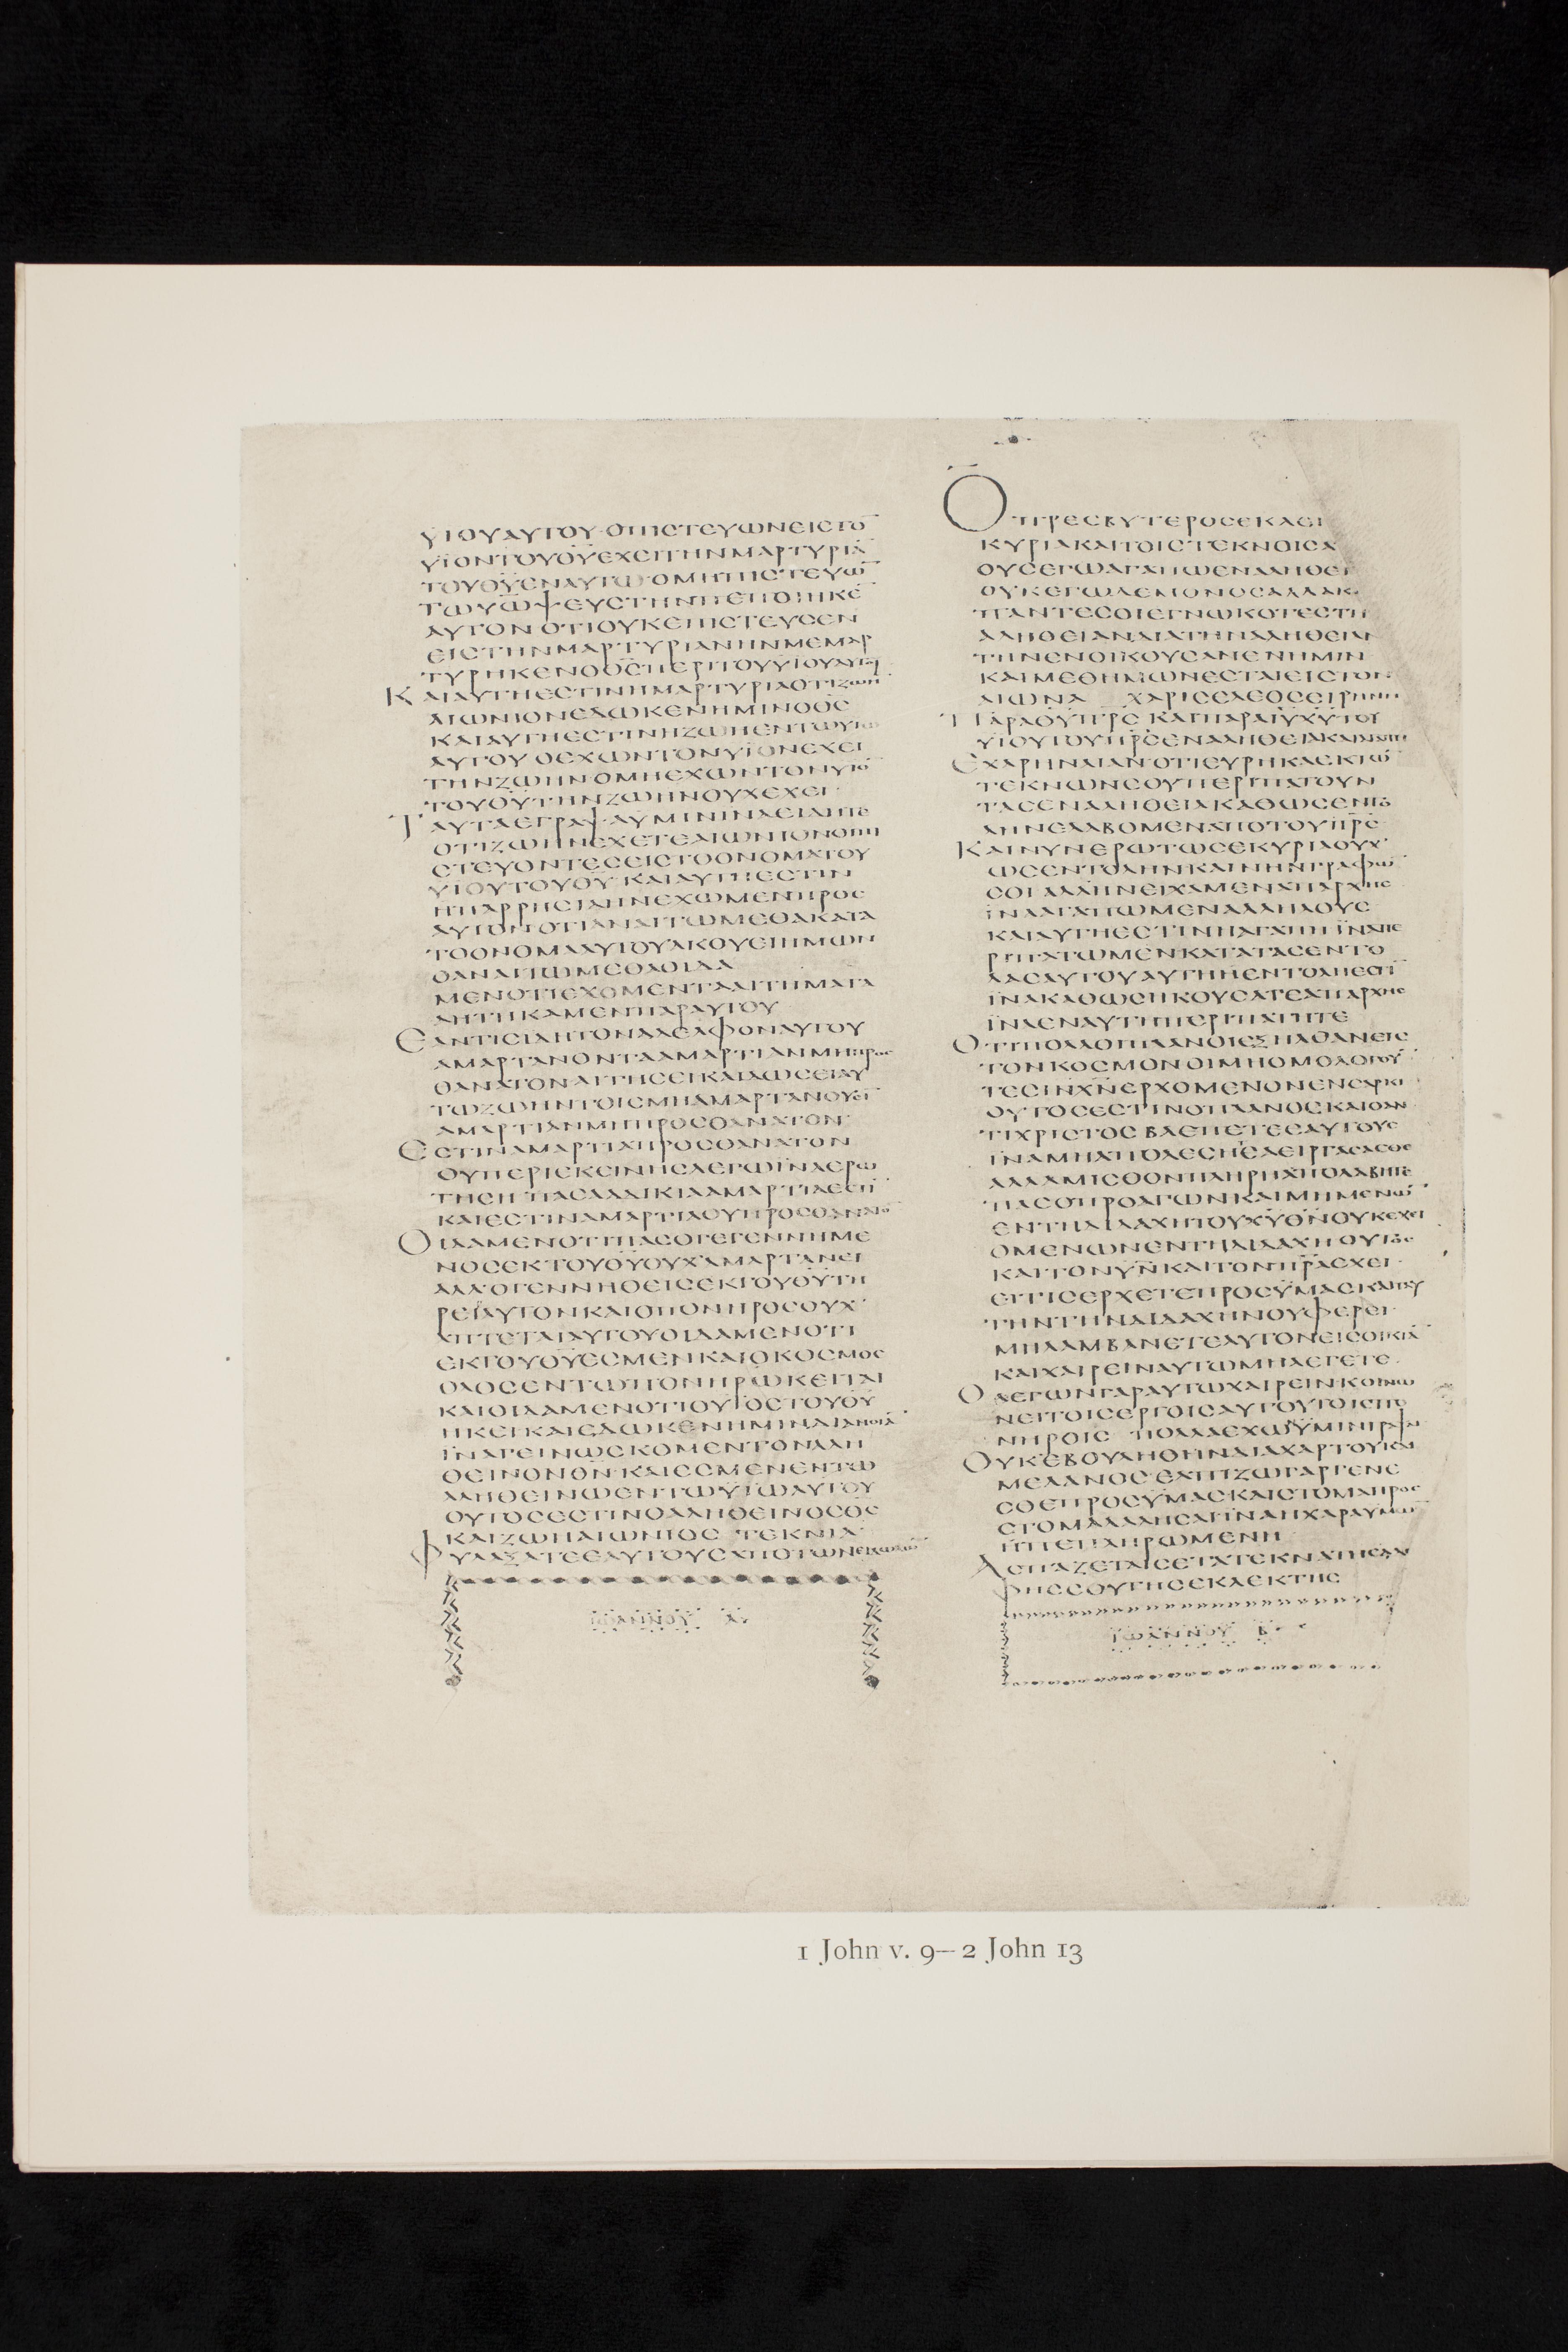 ΥΙΟΥΑΥΤΟΥ·ΟΠΙϹΤΕΥΩΝΕΙϹΤΟ̅
ΥΙΟΝΤΟΥΘ̅Υ̅ΕΧΕΙΤΗΝΜΑΡΤΥΡΙΑ̅
ΤΟΥΘ̅Υ̅ΕΝΑΥΤΩ·ΟΜΗΠΙϹΤΕΥΩ̅
ΤΩΥΩ̅ΨΕΥϹΤΗΝΠΕΠΟΙΗΚΕ̅
ΑΥΤΟΝΟΤΙΟΥΚΕΠΙϹΤΕΥϹΕΝ
ΕΙϹΤΗΝΜΑΡΤΥΡΙΑΝΗΝΜΕΜΑΡ
ΤΥΡΗΚΕΝΟΘ̅Ϲ̅ΠΕΡΙΤΟΥΥΙΟΥΑΥΤΟΥ
ΚΑΙΑΥΤΗΕϹΤΙΝΗΜΑΡΤΥΡΙΑΟΤΙΖΩΗΝ
ΑΙΩΝΙΟΝΕΔΩΚΕΝΗΜΙΝΟΘ̅Ϲ̅
ΚΑΙΑΥΤΗΕϹΤΙΝΗΖΩΗΕΝΤΩΥΙΩ
ΑΥΤΟΥΟΕΧΩΝΤΟΝΥΙΟΝΕΧΕΙ
ΤΗΝΖΩΗΝΟΜΗΕΧΩΝΤΟΝΥΙΟ̅
ΤΟΥΘ̅Υ̅ΤΗΝΖΩΗΝΟΥΧΕΧΕΙ·
ΤΑΥΤΑΕΓΡΑΨΑΥΜΙΝΙΝΑΕΙΔΗΤΕ
ΟΤΙΖΩΗΝΕΧΕΤΕΑΙΩΝΙΟΝΟΙΠΙ
ϹΤΕΥΟΝΤΕϹΕΙϹΤΟΟΝΟΜΑΤΟΥ
ΥΙΟΥΤΟΥΘ̅Υ̅ΚΑΙΑΥΤΗΕϹΤΙΝ
ΗΠΑΡΡΗϹΙΑΗΝΕΧΩΜΕΝΠΡΟϹ
ΑΥΤΟΝΟΤΙΑΝΑΙΤΩΜΕΘΑΚΑΤΑ
ΤΟΟΝΟΜΑΑΥΤΟΥΑΚΟΥΕΙΗΜΩΝ
ΟΑΝΑΙΤΩΜΕΘΑΟΙΔΑ
ΜΕΝΟΤΙΕΧΟΜΕΝΤΑΑΙΤΗΜΑΤΑ
ΑΗΤΗΚΑΜΕΝΠΑΡΑΥΤΟΥ
ΕΑΝΤΙϹΙΔΗΤΟΝΑΔΕΛΦΟΝΑΥΤΟΥ
ΑΜΑΡΤΑΝΟΝΤΑΑΜΑΡΤΙΑΝΜΗΠΡΟϹ
ΘΑΝΑΤΟΝΑΙΤΗϹΕΙΚΑΙΔΩϹΕΙΑΥ
ΤΩΖΩΗΝΤΟΙϹΜΗΑΜΑΡΤΑΝΟΥϹΙ̅
ΑΜΑΡΤΙΑΝΜΗΠΡΟϹΘΑΝΑΤΟΝ·
ΕϹΤΙΝΑΜΑΡΤΙΑΠΡΟϹΘΑΝΑΤΟΝ
ΟΥΠΕΡΙΕΚΕΙΝΗϹΛΕΓΩΙΝΑΕΡΩ
ΤΗϹΗΠΑϹΑΑΔΙΚΙΑΑΜΑΡΤΙΑΕϹΤΙ̅
ΚΑΙΕϹΤΙΝΑΜΑΡΤΙΑΟΥΠΡΟϹΘΑΝΑΤΟ̅
ΟΙΔΑΜΕΝΟΤΙΠΑϹΟΓΕΓΕΝΝΗΜΕ
ΝΟϹΕΚΤΟΥΘ̅Υ̅ΟΥΧΑΜΑΡΤΑΝΕΙ
ΑΛΛΟΓΕΝΝΗΘΕΙϹΕΚΤΟΥΘ̅Υ̅ΤΗ
ΡΕΙΑΥΤΟΝΚΑΙΟΠΟΝΗΡΟϹΟΥΧ
ΑΠΤΕΤΑΙΑΥΤΟΥΟΙΔΑΜΕΝΟΤΙ
ΕΚΤΟΥΘ̅Υ̅ΕϹΜΕΝΚΑΙΟΚΟϹΜΟϹ
ΟΛΟϹΕΝΤΩΠΟΝΗΡΩΚΕΙΤΑΙ
ΚΑΙΟΙΔΑΜΕΝΟΤΙΟΥΙΟϹΤΟΥΘ̅Υ̅
ΗΚΕΙΚΑΙΕΔΩΚΕΝΗΜΙΝΔΙΑΝΟΙΑ̅
ΙΝΑΓΕΙΝΩϹΚΟΜΕΝΤΟΝΑΛΗ
ΘΕΙΝΟΝΘ̅Ν̅ΚΑΙΕϹΜΕΝΕΝΤΩ
ΑΛΗΘΕΙΝΩΕΝΤΩΥΙΩΑΥΤΟΥ
ΟΥΤΟϹΕϹΤΙΝΟΑΛΗΘΕΙΝΟϹΘ̅Ϲ̅
ΚΑΙΖΩΗΑΙΩΝΙΟϹΤΕΚΝΙΑ
ΦΥΛΑΞΑΤΕΕΑΥΤΟΥϹΑΠΟΤΩΝΕΙΔΩΛΩ̅
ΙΩΑΝΝΟΥ Α
ΟΠΡΕϹΒΥΤΕΡΟϹΕΚΛΕΚ
ΚΥΡΙΑΚΑΙΤΟΙϹΤΕΚΝΟΙϹΑ
ΟΥϹΕΓΩΑΓΑΠΩΕΝΑΛΗΘΕΙ
ΟΥΚΕΓΩΔΕΜΟΝΟϹΑΛΛΑΚ
ΠΑΝΤΕϹΟΙΕΓΝΩΚΟΤΕϹΤΗ
ΑΛΗΘΕΙΑΝΔΙΑΤΗΝΑΛΗΘΕΙΑΝ
ΤΗΝΕΝΟΙΚΟΥϹΑΝΕΝΗΜΙΝ
ΚΑΙΜΕΘΗΜΩΝΕϹΤΑΙΕΙϹΤΟΝ
ΑΙΩΝΑ ΧΑΡΙϹΕΛΕΟϹΕΙΡΗΝΗ
ΠΑΡΑΘ̅Υ̅Π̅Ρ̅Ϲ̅ΚΑΙΠΑΡΑΙ̅Υ̅Χ̅Υ̅ΤΟΥ
ΥΙΟΥΤΟΥΠ̅Ρ̅Ϲ̅ΕΝΑΛΗΘΕΙΑΚΑΙΑΓΑΠΗ
ΕΧΑΡΗΝΛΙΑΝΟΤΙΕΥΡΗΚΑΕΚΤΩ̅
ΤΕΚΝΩΝϹΟΥΠΕΡΙΠΑΤΟΥΝ
ΤΑϹΕΝΑΛΗΘΕΙΑΚΑΘΩϹΕΝΤΟ
ΛΗΝΕΛΑΒΟΜΕΝΑΠΟΤΟΥΠ̅Ρ̅Ϲ̅
ΚΑΙΝΥΝΕΡΩΤΩϹΕΚΥΡΙΑΟΥΧ
ΩϹΕΝΤΟΛΗΝΚΑΙΝΗΝΓΡΑΦΩ̅
ϹΟΙΑΛΛΗΝΕΙΧΑΜΕΝΑΠΑΡΧΗϹ
ΙΝΑΑΓΑΠΩΜΕΝΑΛΛΗΛΟΥϹ
ΚΑΙΑΥΤΗΕϹΤΙΝΗΑΓΑΠΗΙΝΑΠΕ
ΡΙΠΑΤΩΜΕΝΚΑΤΑΤΑϹΕΝΤΟ
ΛΑϹΑΥΤΟΥΑΥΤΗΗΕΝΤΟΛΗΕϹΤΙ̅
ΙΝΑΚΑΘΩϹΗΚΟΥϹΑΤΕΑΠΑΡΧΗϹ
ΙΝΑΕΝΑΥΤΗΠΕΡΙΠΑΤΗΤΕ
ΟΤΙΠΟΛΛΟΙΠΛΑΝΟΙΕΞΗΛΘΑΝΕΙϹ
ΤΟΝΚΟϹΜΟΝΟΙΜΗΟΜΟΛΟΓΟΥ̅
ΤΕϹΙ̅Ν̅Χ̅Ν̅ΕΡΧΟΜΕΝΟΝΕΝϹΑΡΚΙ
ΟΥΤΟϹΕϹΤΙΝΟΠΛΑΝΟϹΚΑΙΟΑΝ
ΤΙΧΡΙϹΤΟϹΒΛΕΠΕΤΕΕΑΥΤΟΥϹ
ΙΝΑΜΗΑΠΟΛΕϹΗΤΕΑΕΙΡΓΑϹΑϹΘΕ
ΑΛΛΑΜΙϹΘΟΝΠΛΗΡΗΑΠΟΛΑΒΗΤΕ
ΠΑϹΟΠΡΟΑΓΩΝΚΑΙΜΗΜΕΝΩ̅
ΕΝΤΗΔΙΔΑΧΗΤΟΥΧ̅Υ̅Θ̅Ν̅ΟΥΚΕΧΕΙ
ΟΜΕΝΩΝΕΝΤΗΔΙΔΑΧΗΟΥΤΟϹ
ΚΑΙΤΟΝΥ̅Ν̅ΚΑΙΤΟΝΠ̅Ρ̅Α̅ΕΧΕΙ·
ΕΙΤΙϹΕΡΧΕΤΕΠΡΟϹΥΜΑϹΚΑΙΤΑΥ
ΤΗΝΤΗΝΔΙΔΑΧΗΝΟΥΦΕΡΕΙ·
ΜΗΛΑΜΒΑΝΕΤΕΑΥΤΟΝΕΙϹΟΙΚΙΑ̅
ΚΑΙΧΑΙΡΕΙΝΑΥΤΩΜΗΛΕΓΕΤΕ·
ΟΛΕΓΩΝΓΑΡΑΥΤΩΧΑΙΡΕΙΝΚΟΙΝΩ
ΝΕΙΤΟΙϹΕΡΓΟΙϹΑΥΤΟΥΤΟΙϹΠΟ
ΝΗΡΟΙϹ ΠΟΛΛΑΕΧΩΥΜΙΝΓΡΑΨΑΙ
ΟΥΚΕΒΟΥΛΗΘΗΝΔΙΑΧΑΡΤΟΥΚΑΙ
ΜΕΛΑΝΟϹΕΛΠΙΖΩΓΑΡΓΕΝΕ
ϹΘΕΠΡΟϹΥΜΑϹΚΑΙϹΤΟΜΑΠΡΟϹ
ϹΤΟΜΑΛΑΛΗϹΑΙΙΝΑΗΧΑΡΑΥΜΩΝ
ΗΠΕΠΛΗΡΩΜΕΝΗ
ΑϹΠΑΖΕΤΑΙϹΕΤΑΤΕΚΝΑΤΗϹΑΔΕΛ
ΦΗϹϹΟΥΤΗϹΕΚΛΕΚΤΗϹ
ΙΩΑΝΝΟΥ Β
1 John v. 9—2 John 13